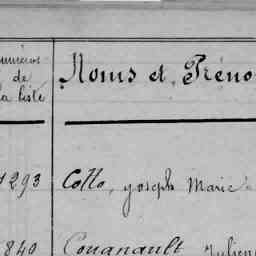 Numéros
de
la liste
Noms et Préno
1293 Collo, Joseph Marie
840 Couanault Julien